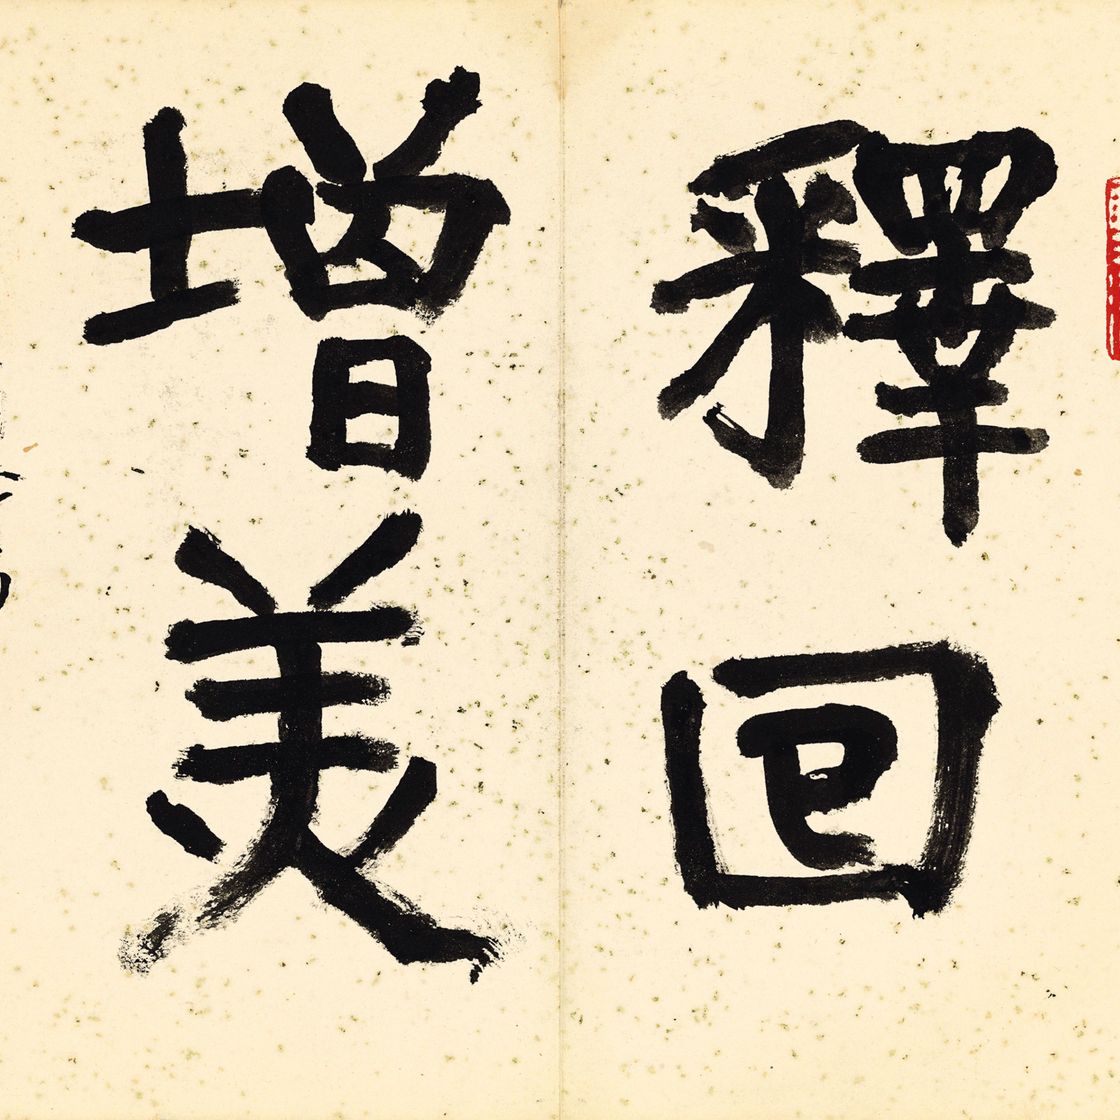 釋回
增美